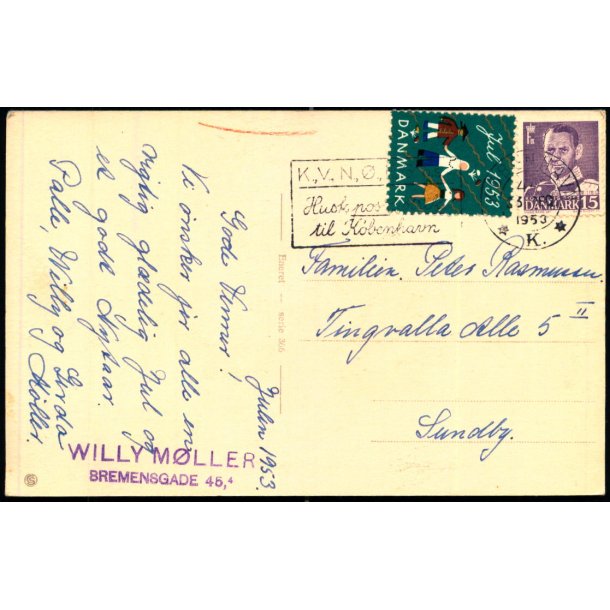 Julen 1953.
Gode Venner!
Vi ønsker jer alle en
rigtig glædelig Jul og
et godt Nytaar.
Palle, Willy og Gerda
Møller.
WILLY MØLLER
BREMENSGADE 45,⁴
Eneret — serie 306
K., V., N., Ø.,
Husk, pos
til København
Jul 1953
DANMARK
DANMARK 15
1953
K.
Familien. Peter Rasmussen
Tingvalla Alle 5 II
Sundby.